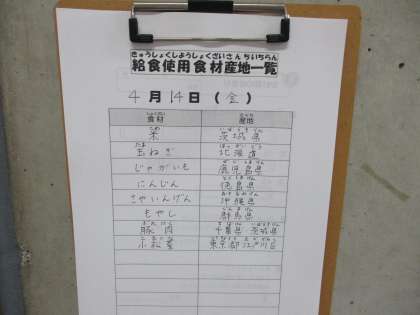 きゅうしょくしようしょくざいさんちいちらん
給食使用食材産地一覧
4月14日(金)
食材 産地
米 茨城県
玉ねぎ 北海道
じゃがいも 鹿児島県
にんじん 徳島県
さやいんげん 沖縄県
もやし 群馬県
豚肉 千葉県 茨城県
小松菜 東京都江戸川区